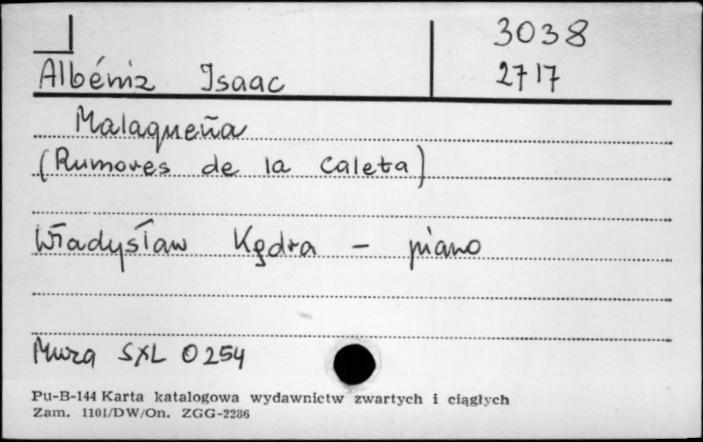 3038
Albéniz Isaac 2717
Malagueña
(Rumores de la Caleta)
Władysław Kędra - piano
Muza SXL 0254
Pu-B-144 Karta katalogowa wydawnictw zwartych i ciągłych
Zam. 1101/DW/On. ZGG-2286